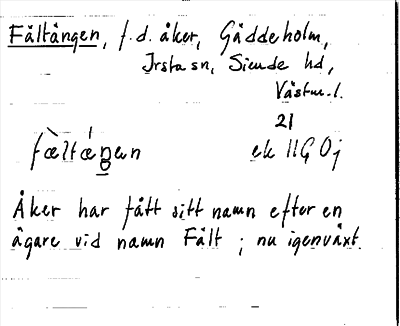 Fältängen, f.d. åker, Gäddeholm,
Irsta sn, Siende hd,
Västm.l.
21
fæ̀ltǽŋen ek 11G 0j
Åker har fått sitt namn efter en
ägare vid namn Fält; nu igenväxt.